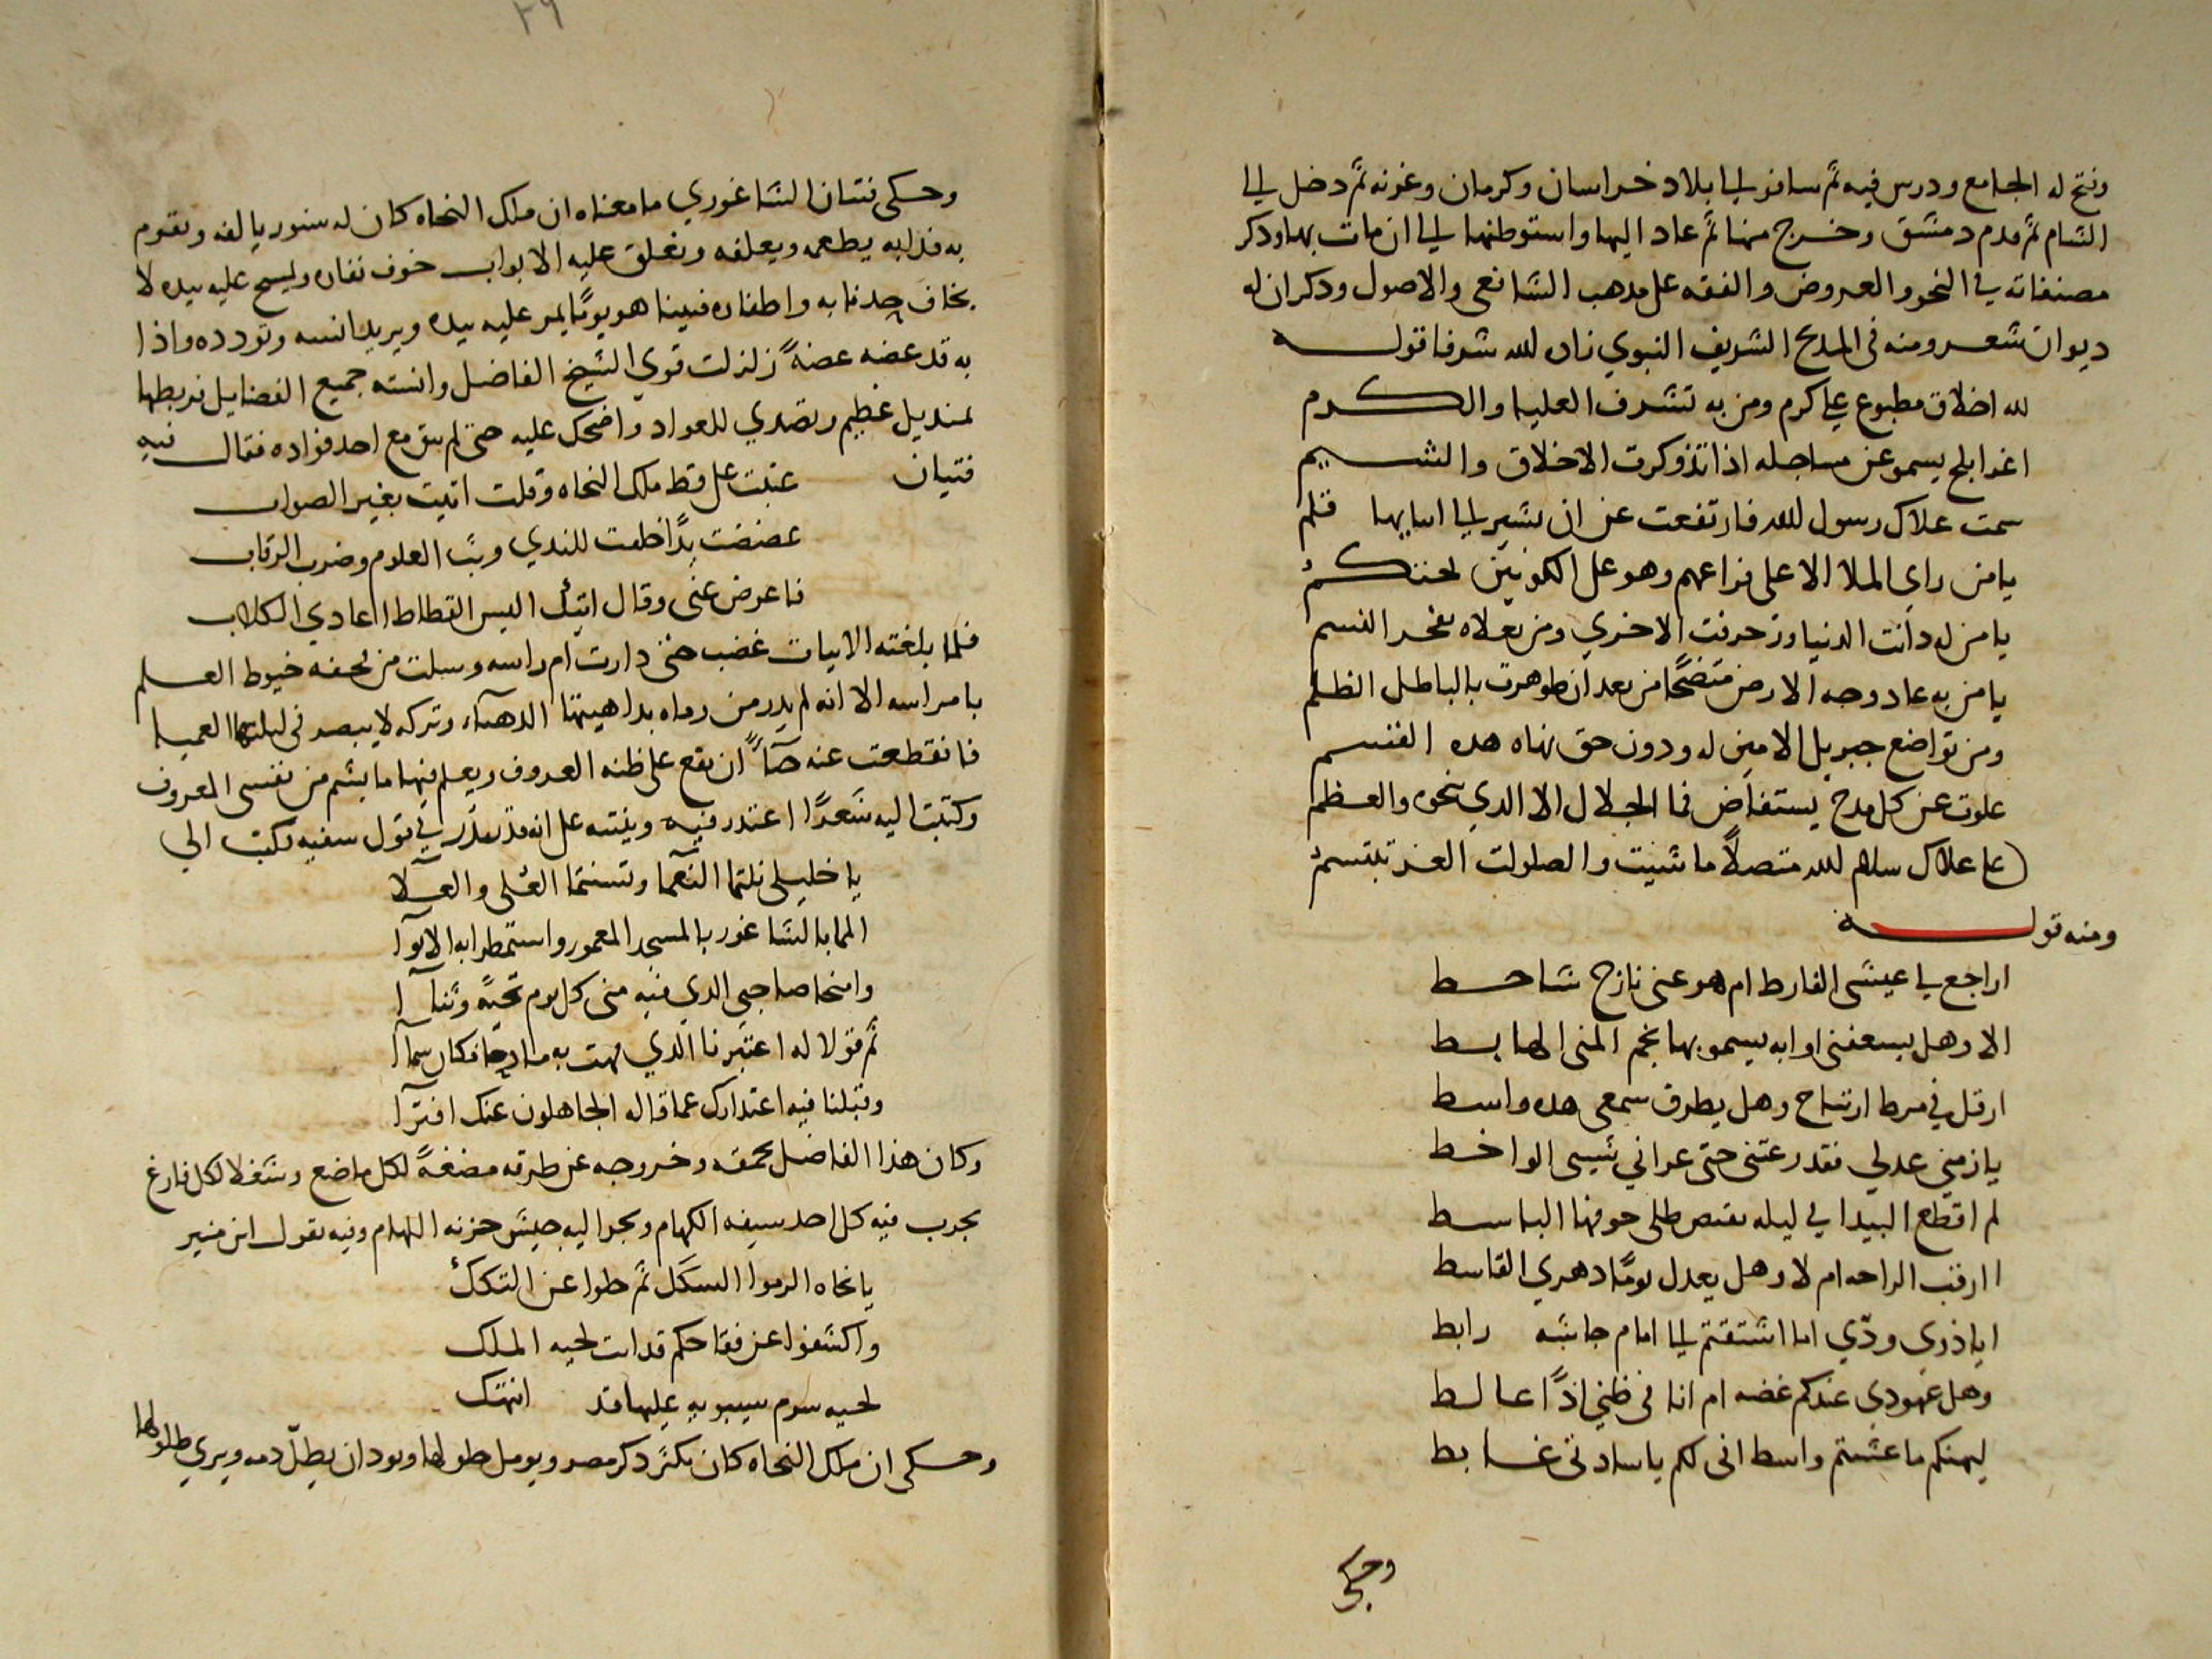 وفتح له الجامع ودرس فيه ثم سافر الى بلاد خراسان وكرمان وغزنه ثم دخل الى
الشام ثم قدم دمشق وخرج منها ثم عاد اليها واستوطنها الى ان مات بها وذكر
مصنفاته في النحو والعروض والفقه على مذهب الشافعي والاصول وذكر ان له
ديوان شعر ومنه في المدح الشريف النبوي زاده الله شرفا قوله
لله اخلاق مطبوع على كرم ومن به تشرف العليا والكرم
اغر ابلج يسمو عن مساجله اذا تذوكرت الاخلاق والشيم
سمت علاك رسول الله فارتفعت عن ان يشير الى اسايها قلم
يا من راى الملا الاعلى فراعهم وهو على الكونين يحتكم
يا من له دانت الدنيا وزخرفت الاخرى ومن بعلاه يفخر النسم
يا من به عاد وجه الارض متضحا من بعد ان طوهرت بالباطل الظلم
ومن تواضع جبريل الامين له ودون حق نهاه هذه القسم
علوت عن كل مدح يستفاض فما الجلال الا الذي تنحوه والعظم
على علاك سلام الله متصلا ما شئت والصلوات الغر تبتسم
ومنه قوله
اراجع لي عيشي الفارط ام هو عني نازح شاحط
الا وهل يسعفني اوابه يسمو بها نجم المنى الهابط
ارفل في مرط ارتياح وهل يطرق سمعي هذه واسط
يا زمني عد لي فقد رعتني حتى عراني شيبي الواخط
لم اقطع البيدا في ليله يقبض ظلي خوفها الباسط
اارقب الراحه ام لا وهل يعدل يوما دهري القاسط
ايا ذوي ودي اما اشتقتم الى امام جاشه رابط
وهل عهودي عندكم غضه ام انا في ظني اذا غالط
ليهنكم ما عشتم واسط اني لكم يا سادتي غابط
وحكى
٢٩
وحكى فتيان الشاغوري ما معناه ان ملك النحاه كان له سنور يالفه ويقوم
به فدابه يطعمه ويعلفه ويغلق عليه الابواب خوف نفاره ويسيح عليه بيده لا
يخاف حد نابه واظفاره فبينا هو يوما يمر عليه بيده ويريد انسه وتودده واذا
به قد عضه عضة زلزلت قوى الشيخ الفاضل وانسته جميع الفضايل فربطها
بمنديل عظيم وتصدى للعواد واضحك عليه حتى لم يبق مع احد فواده فقال فيه
فتيان عتبت على قط ملك النحاه وقلت اتيت بغير الصواب
عضضت يدا خلقت للندى وبث العلوم وضرب الرقاب
فاعرض عني وقال اتئد اليس القطاط اعادي الكلاب
فلما بلغته الابيات غضب حتى دارت ام راسه وسلت من لحفه خيوط العلم
بامراسه الا انه لم يدر من رماه بداهيتها الدهياء وتركه لا يبصر في ليلتها العميا
فانقطعت عنه حياء ان يقع على ظنه العروف ويعلم فيها ما يشم من نفسي المعروف
وكتبت اليه شعرا اعتذر فيه وينبته على انه قد يغدر في قول سفيه فكتب الي
يا خليلي نلتما النعما وتسنمتما العلى والعلآ
المما بالشاغور بالمسجد المعمور واستمطرا به الانوآ
وامنحا صاحبي الذي فيه مني كل يوم تحية وثنآ
ثم قولا له اعتبرنا الذي فهت به مادحا فكان سمآ
وقبلنا فيه اعتذارك عما قاله الجاهلون عنك افترآ
وكان هذا الفاضل بحمقه وخروجه عن طرقه مضغة لكل ماضغ وشغلا لكل فارغ
يجرب فيه كل احد سيفه الكهام ويجر اليه جيش حزنه اللهام وفيه يقول ابن منير
يا نحاه الزموا السكك ثم حلوا عن التكك
واكشفوا عن فقاحكم قد اتت لحيه الملك
لحيه شوم سيبويه عليها قد انهتك
وحكى ان ملك النحاه كان يكثر ذكر مصر ويومل حلولها ويود ان يطل دمه ويرى طلولها